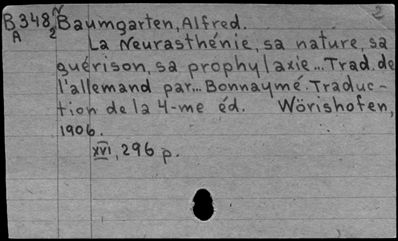 2
B348,N Baumgarten, Alfred.
A 2 La Neurasthénie, sa nature, sa
guérison, sa prophylaxie... Trad. de
l'allemand par... Bonnaymé. Traduc-
tion de la 4-me éd. Wörishofen,
1906.
XVI, 296 p.